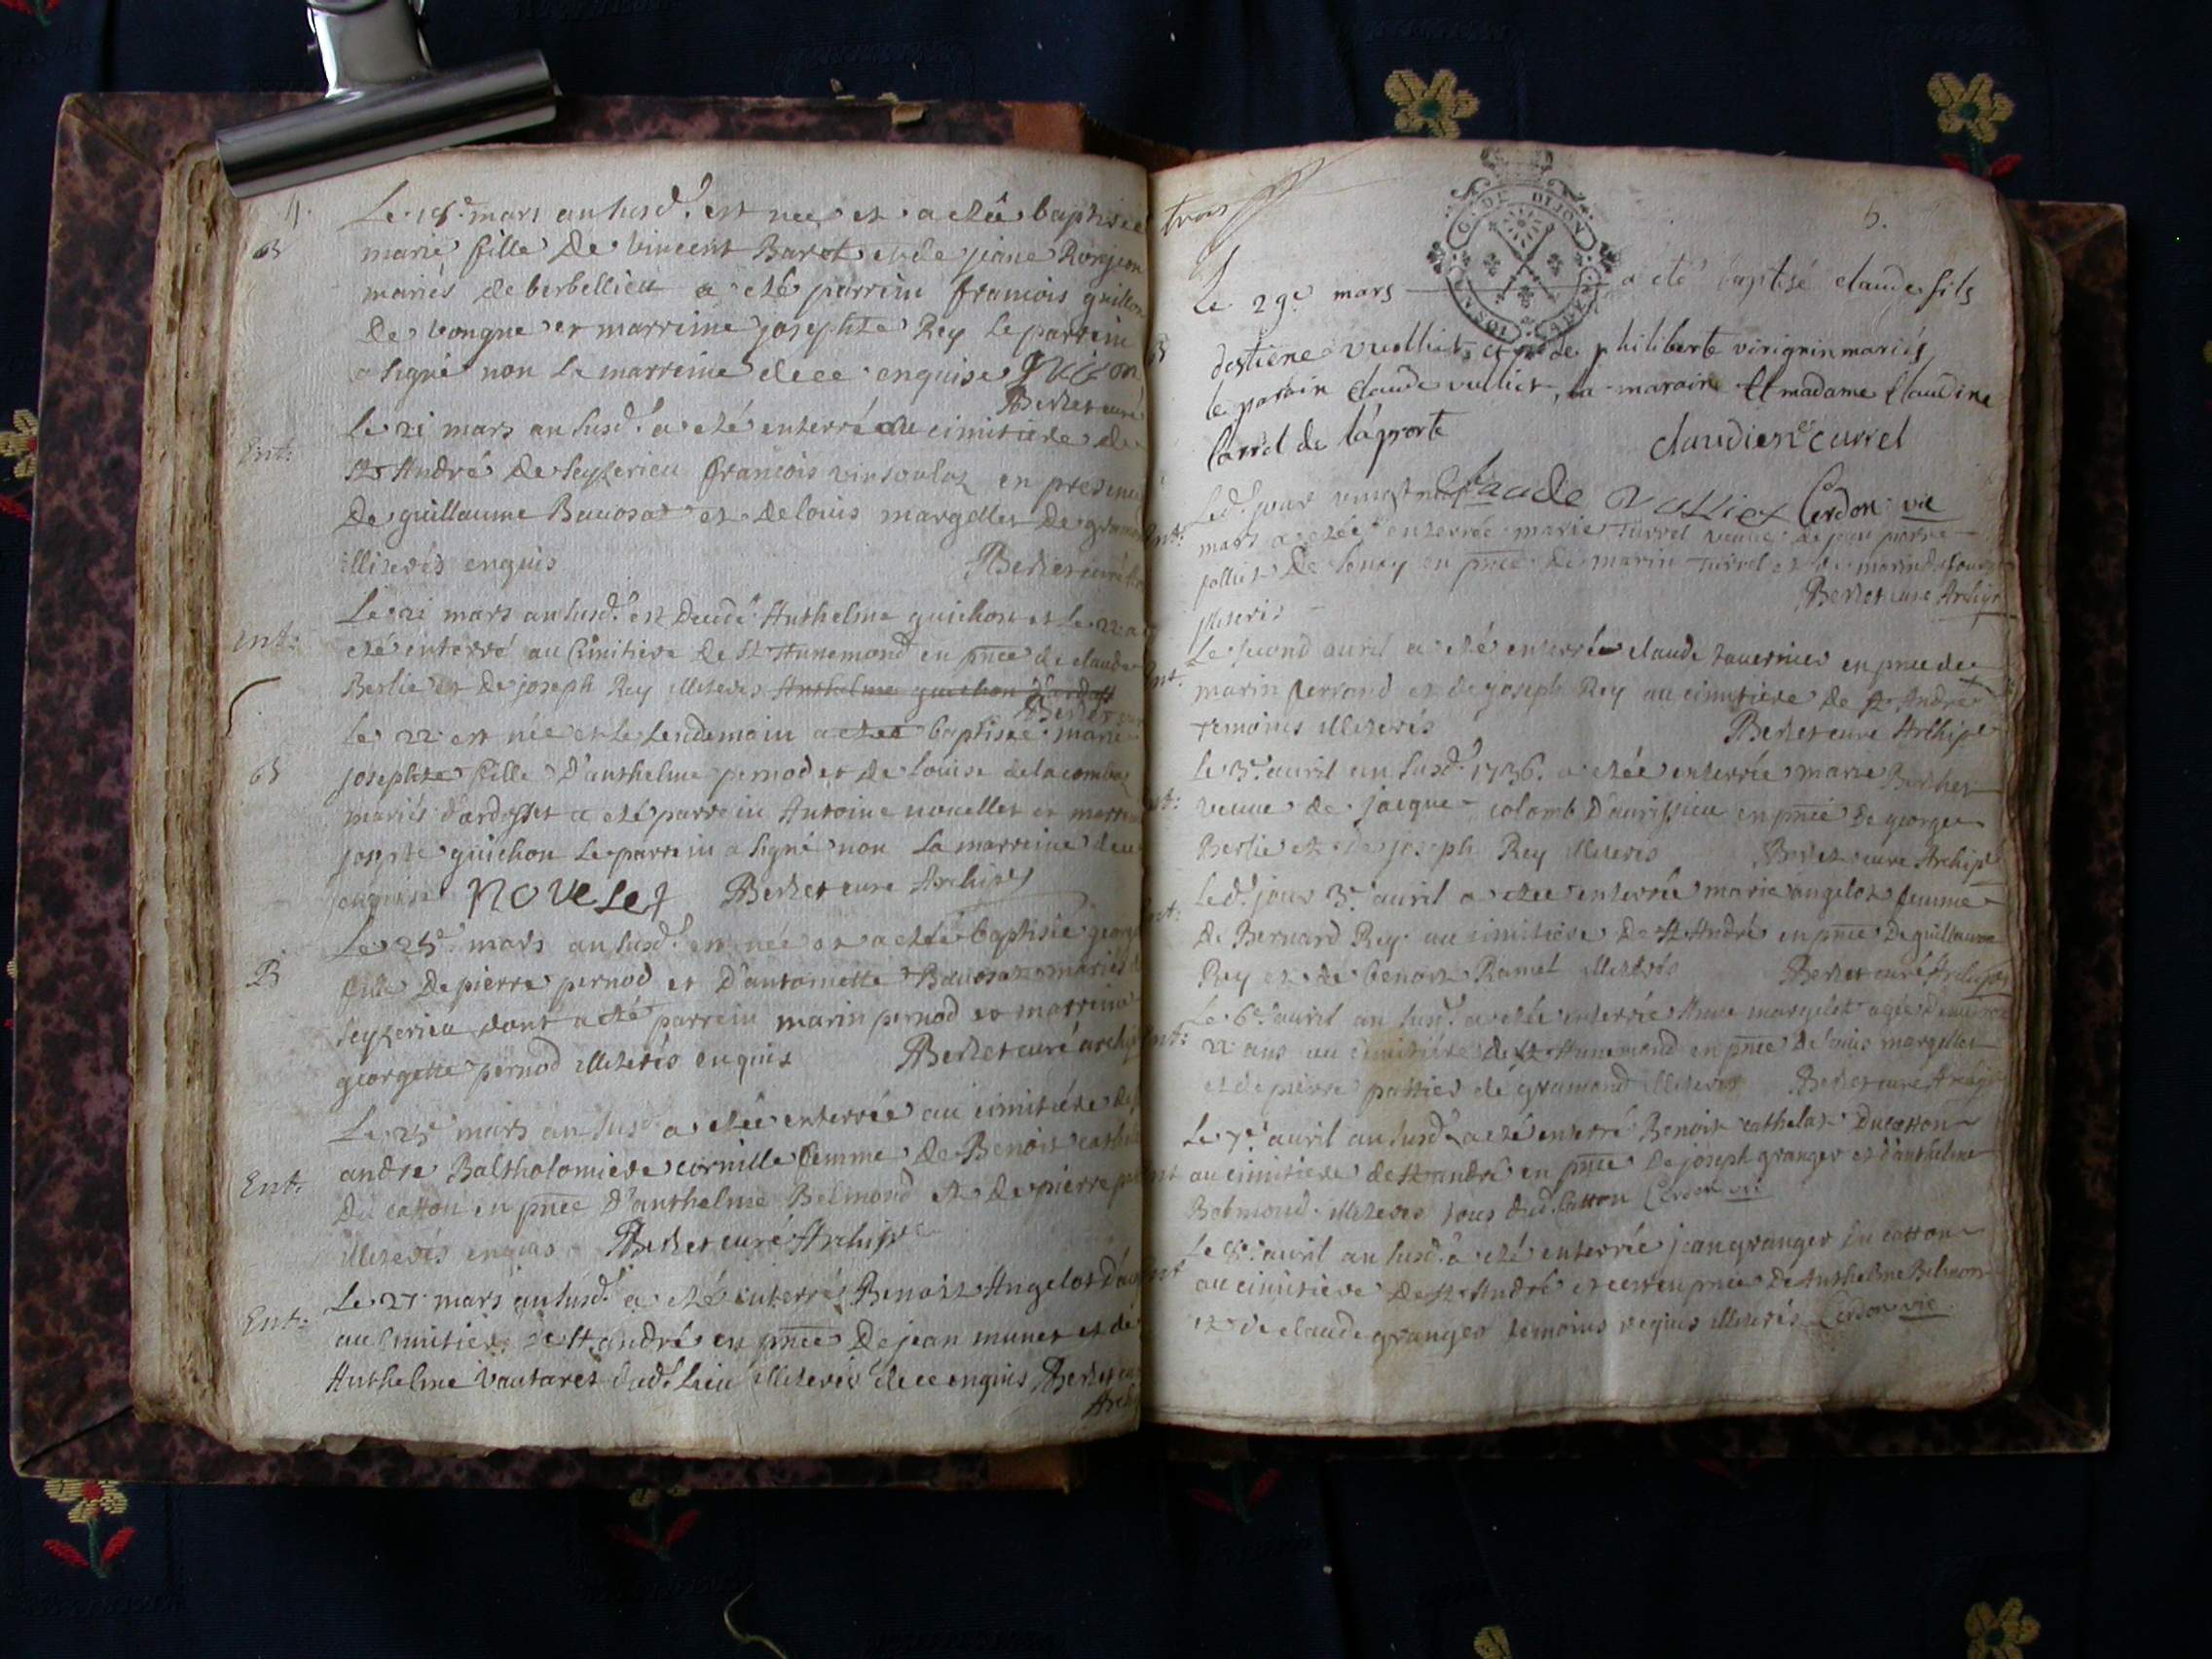 4.
Le 18e mars an susd. est nee et a eté baptisée
B
marie fille de vincent Baret et de jeane Rongeon
mariés de berbellieu a eté parrein francois guillon
de vongne et marreine josephte Rey le parrein
a signé non la marreine de ce enquise guion
Berlet curé
Le 21 mars an susd. a eté enterré au cimitiere de
Ent:
St André de seyzerieu francois vinsouloz en presence
de guillaume Bavosat et de louis margellet de gramond
illiterés enquis Berlet curé
Le 21 mars an susd. est decedé Anthelme guichon et le 22 a
Ent:
eté enterré au cimitiere de St Hunemond en pnce de claude
Berlie et de joseph Rey illiterés Anthelme guichon d'ardosset
Berlet
Le 22 est née et le lendemain a eteé baptisée marie
B
josephte fille d'anthelme pernod et de louise delacombe
mariés d'ardosset a eté parrein Antoine nouellet et marreine
josepte guichon le parrein a signé non la marreine de ce
enquise noveLet Berlet cure Archip
Le 25e mars an susd. est née et a eté baptisée george
B
fille de pierre pernod et d'antoinette Bavosat mariés
seyzerieu dont a eté parrein marin pernod et marreine
georgette pernod illiterés enquis Berlet curé archip
Le 25e mars an susd a eteé enterrée au cimitiére de
andre Baltholomiere cornille femme de Benoit
Ent:
du catton en pnce d'anthelme Belmond et de pierre
illiterés enquis Berlet curé Archipre
Le 27 mars an susd. a eté enterré Benoit Angelot
Ent:
au cimitiere de St andré en pnce de jean munet et de
Anthelme vautaret dud. lieu illiterés de ce enquis Berlet
Arch
trois
G. DE DIJON
5.
Le 29e mars a eté baptisé claude fils
B
destiene vuilliet et de philiberte virignin mariés
le parain claude vulliet, la maraine et madame claudine
Carrel de laporte claudiene currel
Led. jour vingt neuf claude vulliet Cerdon vic
Ent:
mars a eteé enterrée marie Turrel veuve de feu pierre
jolliet de lonay en pnce de marin Turrel et de marin
illiterés Berlet cure Archip
Le second avril a eté enterré claude tavernier en pnce de
Ent.
marin ferrand et de joseph Rey au cimitiere de St André
temoins illiterés Berlet cure Archipe
Le 3e avril an susd. 1736. a eteé enterrée marie Berthet
Ent:
veuve de jacque colomb d'aurissieu en pnce de george
Berlie et de joseph Rey illiterés Berlet cure Archip
Led. jour 3e avril a eteé enterrée marie angelot femme
Ent:
de Bernard Rey au cimitiere de St André en pnce de guillaume
Rey et de benoit Ramel illiterés Berlet curé Archip
Le 6e avril an susd. a eteé enterrée Anne margelet agée d'environ
Ent:
22 ans au cimitiére de St Hunemond en pnce de louis margellet
et de pierre pattier de gramond illiterés Berlet cure Archip
Le 7e avril an susd. a eté enterré Benoit cathelat du catton
Ent
au cimitiere de St andré en pnce de joseph granger et d'anthelme
Belmond illiterés tous dud. Catton Cerdon vic
Le 8e avril an susd. a eté enterrée jean granger du catton
Ent
au cimitiere de St André et ce en pnce de Anthelme Belmon
et de claude granger temoins requis illiterés Cerdon vic